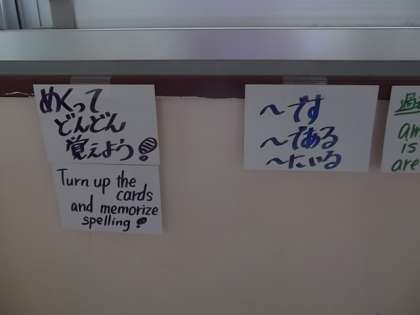 めくって
どんどん
覚えよう!
Turn up the
cards
and memorize
spelling!
~です
~である
~にいる
過
am
is
are